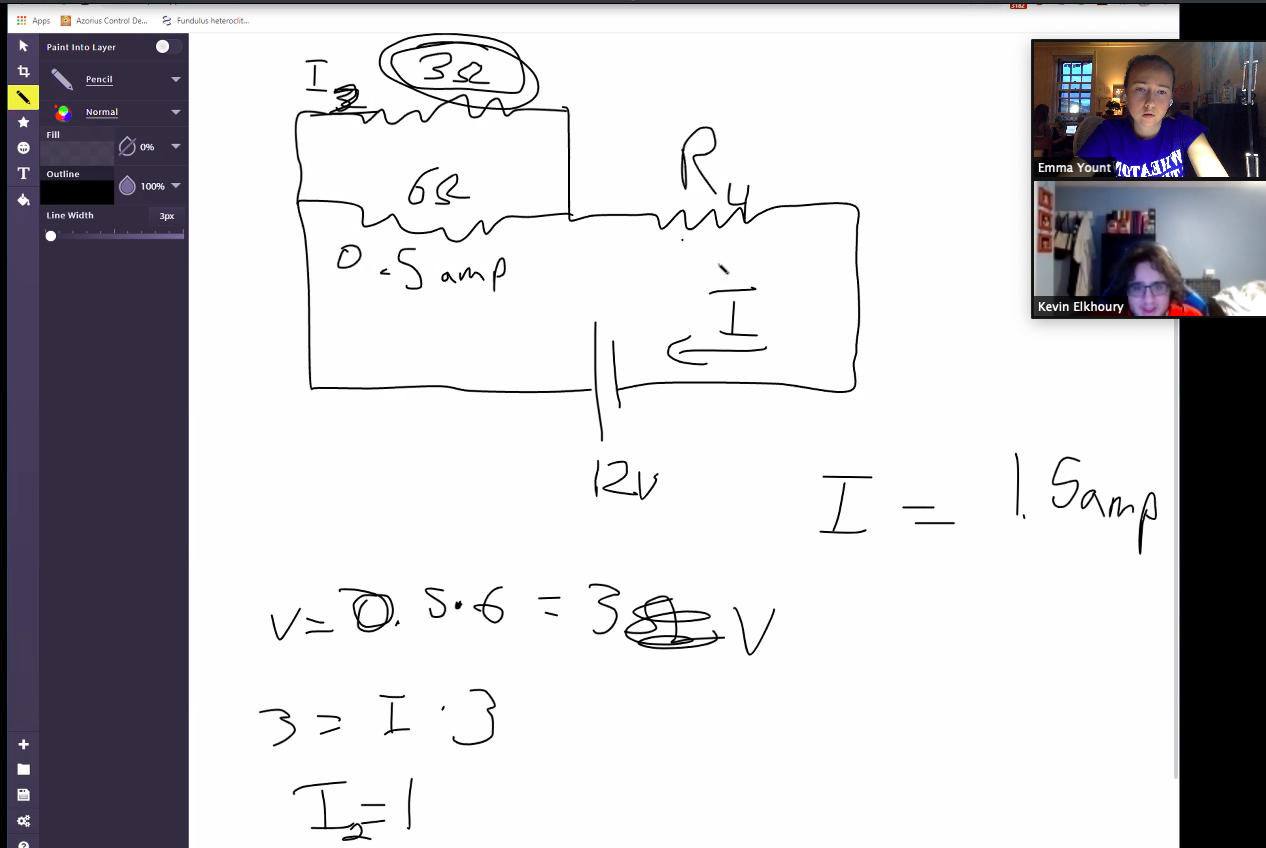 3182
Apps
Azorius Control De...
Fundulus heteroclit...
Paint Into Layer
Pencil
Normal
Fill
0%
Outline
100%
Line Width
3px
T
I
3Ω
6Ω
0.5 amp
R4
I
12v
I = 1.5amp
V = 0.5·6 = 3 V
3 = I · 3
I2=1
Emma Yount
WHEATON
Kevin Elkhoury